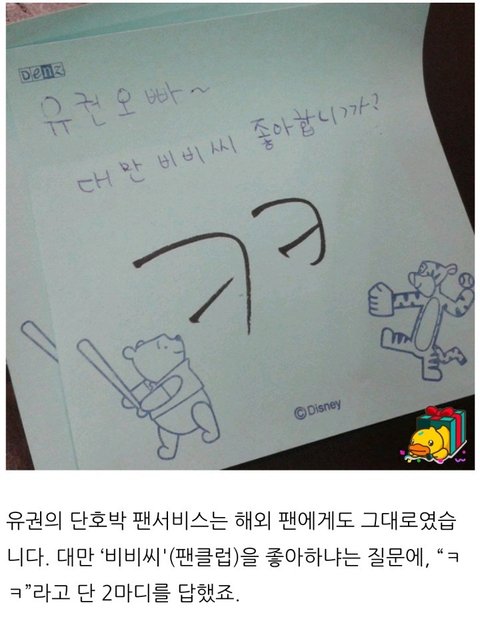 Denz
유권오빠~
대만 비비씨 좋아합니까?
ㅋㅋ
©Disney
유권의 단호박 팬서비스는 해외 팬에게도 그대로였습
니다. 대만 ‘비비씨'(팬클럽)을 좋아하냐는 질문에, “ㅋ
ㅋ”라고 단 2마디를 답했죠.